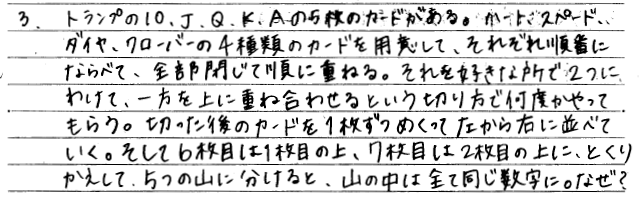 3. トランプの10、J、Q、K、Aの5枚のカードがある。ハート、スペード、
ダイヤ、クローバーの4種類のカードを用意して、それぞれ順番に
ならべて、全部閉じて順に重ねる。それを好きな所で2つに
わけて、一方を上に重ね合わせるという切り方で何度かやって
もらう。切った後のカードを1枚ずつめくって左から右に並べて
いく。そして6枚目は1枚目の上、7枚目は2枚目の上に、とくり
かえして、5つの山に分けると、山の中は全て同じ数字に。なぜ?